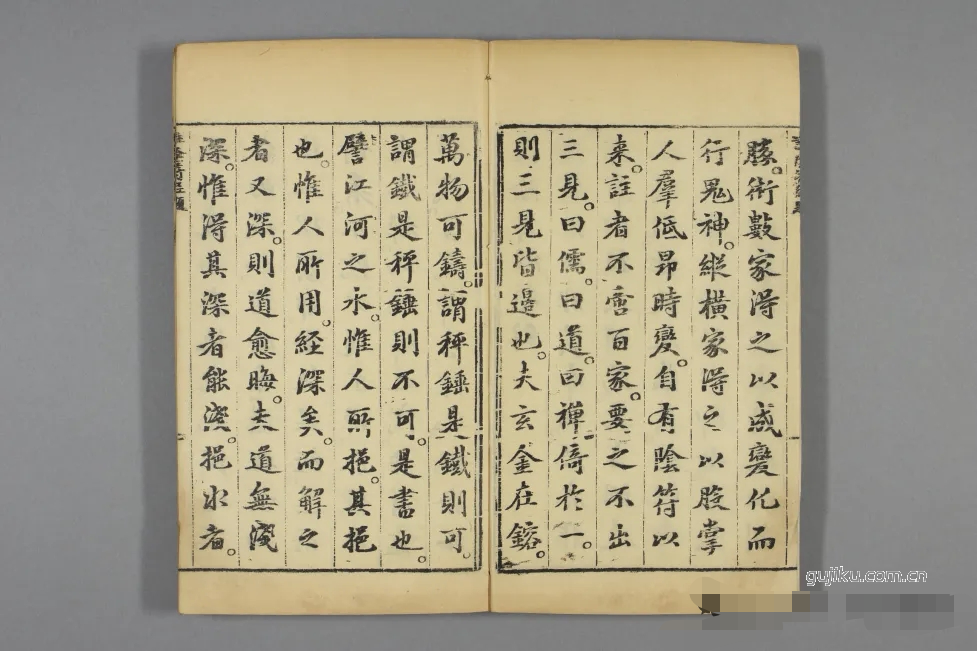 勝。術數家得之以成變化而
行鬼神。縱橫家得之以股掌
人羣低昂時變。自有陰符以
來。註者不啻百家。要之不出
三見。曰儒。曰道。曰禪。倚於一。
則三見皆邊也。夫玄金在鎔。
萬物可鑄。謂秤錘是鐵則可。
謂鐵是秤錘則不可。是書也。
譬江河之水。惟人所挹。其挹
也。惟人所用。經深矣。而解之
者又深。則道愈晦。夫道無淺
深。惟得其深者能淺。挹水者。
gujiku.com.cn